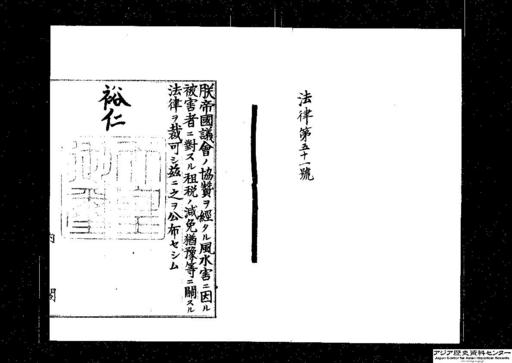 法律第五十一號
朕帝國議會ノ協贊ヲ經タル風水害ニ因ル
被害者ニ對スル租税ノ減免猶豫等ニ關スル
法律ヲ裁可シ玆ニ之ヲ公布セシム
裕仁
内閣
アジア歴史資料センター
Japan Center for Asian Historical Records